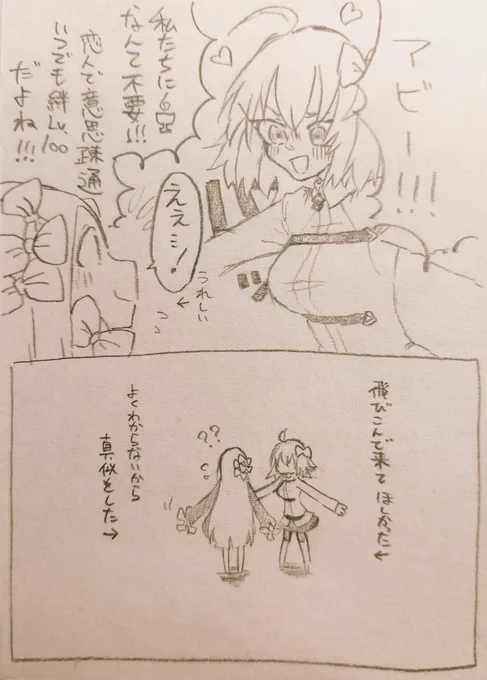 アビー!!!
私たちに
なんて不要!!!
恋人で意思疎通
いつでも絆Lv.100
だよね!!!
ええ…!
うれしい
飛びこんで来てほしかった←
??
よくわからないから
真似をした→